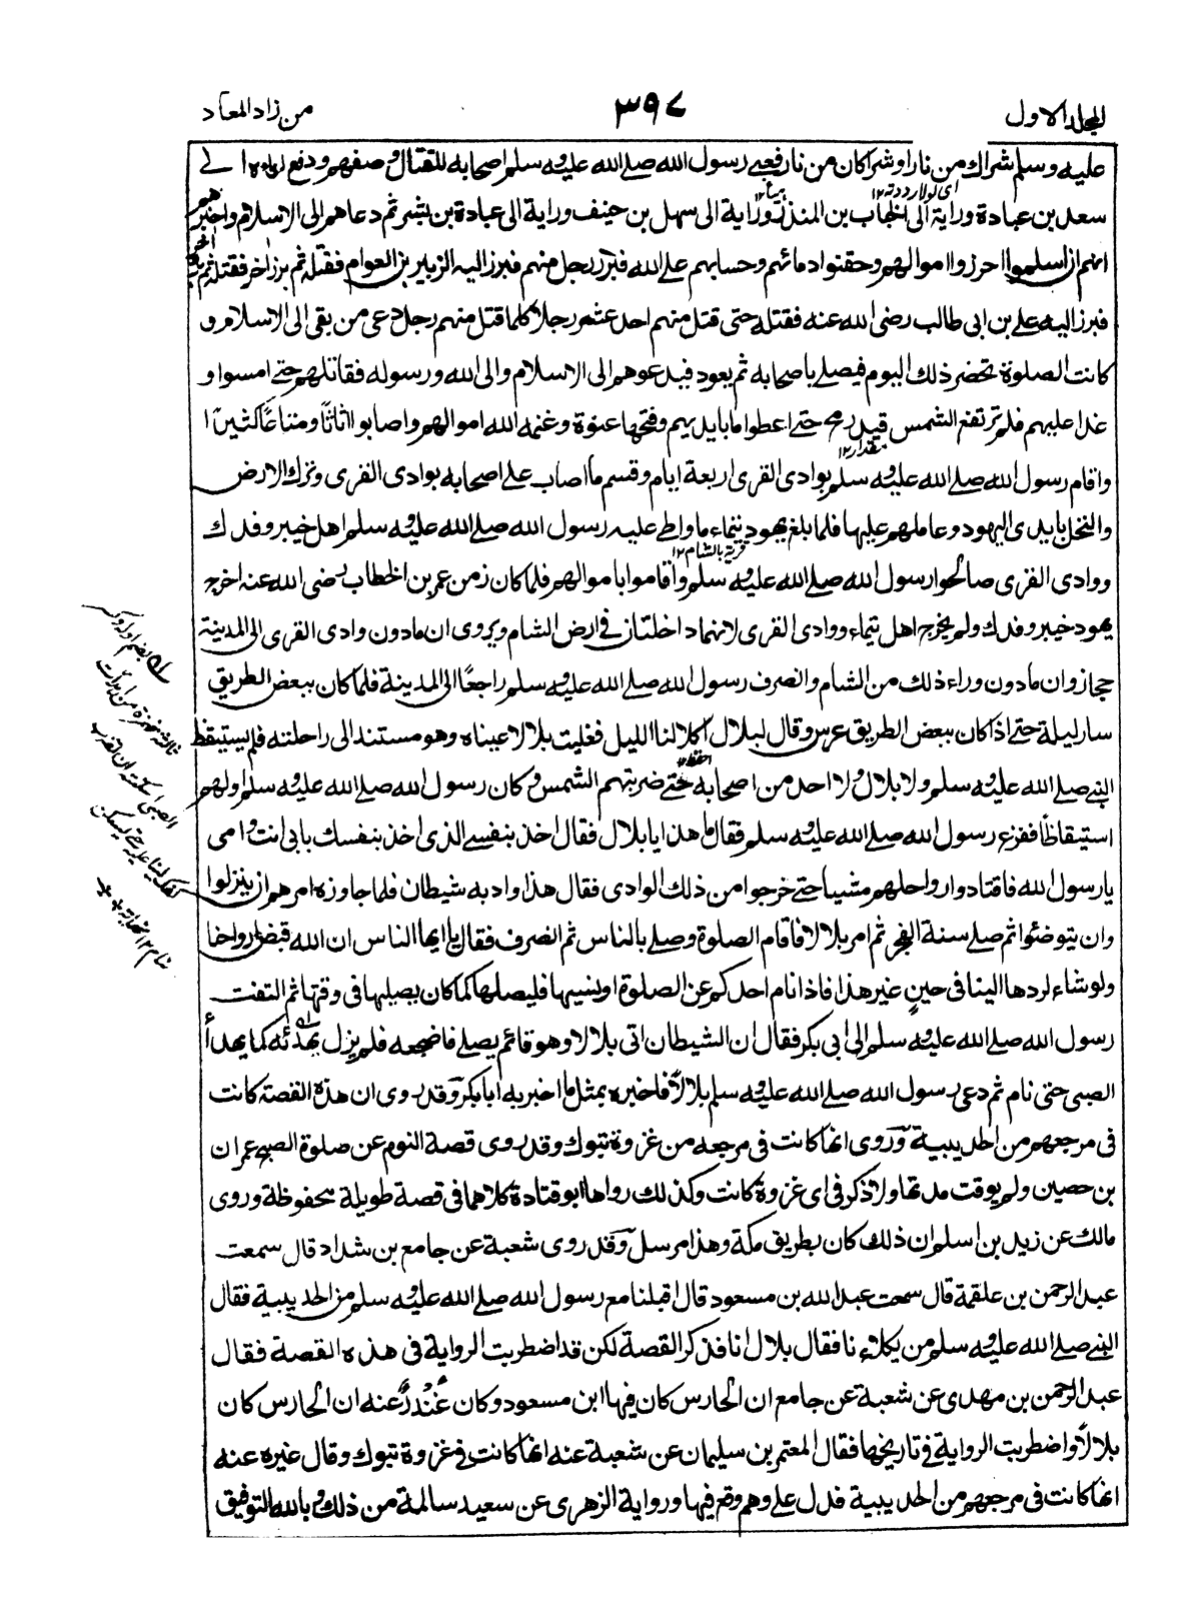 المجلد الاول
٣٩٧
من زاد المعاد
عليه وسلم شراك من نار او شراكان من نار فعبى رسول الله صلے الله عليه وسلم اصحابه للقتال وصفهم ودفع لواءه الے
اى لواء
سعد بن عبادة وراية الى الحباب بن المنذر وراية الى سهل بن حنيف وراية الى عبادة بن بشر ثم دعاهم الى الاسلام واخبرهم
انهم ان اسلموا احرزوا اموالهم وحقنوا دمائهم وحسابهم على الله فبرز رجل منهم فبرز اليه الزبير بن العوام فقتله ثم برز اخر فقتله ثم برز اخر
فبرز اليه على بن ابى طالب رضى الله عنه فقتله حتى قتل منهم احد عشر رجلا كلما قتل منهم رجل دعى من بقى الى الاسلام و
كانت الصلوة تحضر ذلك اليوم فيصلے باصحابه ثم يعود فيدعوهم الى الاسلام والى الله ورسوله فقاتلهم حتے امسوا و
غدا عليهم فلم ترتفع الشمس قيد رمح حتے اعطوا ما بايديهم وفتحها عنوة وغنمه الله اموالهم واصابوا اثاثا ومتاعا كثيرا
مقدار ١٢
واقام رسول الله صلے الله عليه وسلم بوادى القرى اربعة ايام وقسم ما اصاب على اصحابه بوادى القرى وترك الارض
والنخل بايدى اليهود وعاملهم عليها فلما بلغ يهود تيماء ما واطى عليه رسول الله صلے الله عليه وسلم اهل خيبر وفدك
قرية بالشام ١٢
ووادى القرى صالحوا رسول الله صلے الله عليه وسلم واقاموا باموالهم فلما كان زمن عمر بن الخطاب رضى الله عنه اخرج
يهود خيبر وفدك ولم يخرج اهل تيماء ووادى القرى لانهما داخلتان فى ارض الشام ويروى ان ما دون وادى القرى الى المدينة
حجاز وان ما دون وراء ذلك من الشام وانصرف رسول الله صلے الله عليه وسلم راجعًا الى المدينة فلما كان ببعض الطريق
سار ليلة حتے اذا كان ببعض الطريق عرس وقال لبلال اكلا لنا الليل فغلبت بلالا عيناه وهو مستند الى راحلته فلم يستيقظ
احفظ ١٢
النبے صلے الله عليه وسلم ولا بلال ولا احد من اصحابه حتے ضربتهم الشمس وكان رسول الله صلے الله عليه وسلم اولهم
استيقاظًا ففزع رسول الله صلے الله عليه وسلم فقال ما هذا يا بلال فقال اخذ بنفسے الذى اخذ بنفسك بابى انت وامى
يا رسول الله فاقتادوا رواحلهم مشيا حتے خرجوا من ذلك الوادى فقال هذا واد به شيطان فلما جاوزه امرهم ان ينزلوا
وان يتوضئوا ثم صلے سنة الفجر ثم امر بلالا فاقام الصلوة وصلے بالناس ثم انصرف فقال يا ايها الناس ان الله قبض ارواحنا
ولو شاء لردها الينا فى حين غير هذا فاذا نام احدكم عن الصلوة او نسيها فليصلها كما كان يصليها فى وقتها ثم التفت
رسول الله صلے الله عليه وسلم الى ابى بكر فقال ان الشيطان اتى بلالا وهو قائم يصلے فاضجعه فلم يزل يهدئه كما يهدأ
الصبى حتى نام ثم دعى رسول الله صلے الله عليه وسلم بلالًا فاخبره بمثل ما اخبر به ابا بكر وقد روى ان هذه القصة كانت
فى مرجعهم من الحديبية وروى انها كانت فى مرجعه من غزوة تبوك وقد روى قصة النوم عن صلوة الصبح عمران
بن حصين ولم يوقت مدتها ولا ذكر فى اى غزوة كانت وكذلك رواها ابو قتادة كلاهما فى قصة طويلة محفوظة وروى
مالك عن زيد بن اسلم ان ذلك كان بطريق مكة وهذا مرسل وقد روى شعبة عن جامع بن شداد قال سمعت
عبد الرحمن بن علقمة قال سمعت عبد الله بن مسعود قال اقبلنا مع رسول الله صلے الله عليه وسلم من الحديبية فقال
النبے صلے الله عليه وسلم من يكلاءنا فقال بلال انا فذكر القصة لكن قد اضطربت الرواية فى هذه القصة فقال
عبد الرحمن بن مهدى عن شعبة عن جامع ان الحارس كان فيها ابن مسعود وكان غُنْدُرٌ عنه ان الحارس كان
بلالًا واضطربت الرواية فى تاريخها فقال المعتمر بن سليمان عن شعبة عنه انها كانت فى غزوة تبوك وقال غيره عنه
انها كانت فى مرجعهم من الحديبية فدل على وهم وقع فيها ورواية الزهرى عن سعيد سالمة من ذلك وبالله التوفيق